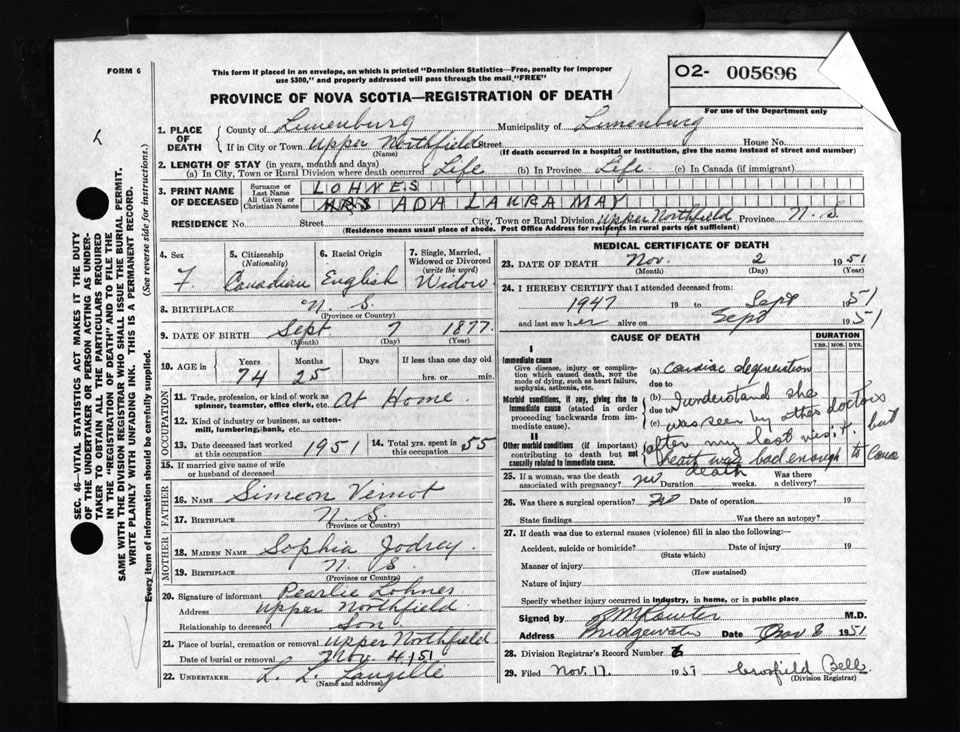 FORM 6
This form if placed in an envelope, on which is printed "Dominion Statistics—Free, penalty for improper
use $300," and properly addressed will pass through the mail "FREE"
PROVINCE OF NOVA SCOTIA—REGISTRATION OF DEATH
O2- 005696
For use of the Department only
1. PLACE OF DEATH County of Lunenburg Municipality of Lunenburg
If in City or Town Upper Northfield Street House No.
(Name) (If death occurred in a hospital or institution, give the name instead of street and number)
2. LENGTH OF STAY (in years, months and days)
(a) In City, Town or Rural Division where death occurred Life (b) In Province Life (c) In Canada (if immigrant)
3. PRINT NAME OF DECEASED Surname or Last Name LOHNES
All Given or Christian Names MRS ADA LAURA MAY
RESIDENCE No. Street City, Town or Rural Division Upper Northfield Province N. S.
(Residence means usual place of abode. Post Office Address for residents in rural parts not sufficient)
4. Sex F.
5. Citizenship (Nationality) Canadian
6. Racial Origin English
7. Single, Married, Widowed or Divorced (write the word) Widow
8. BIRTHPLACE N. S.
(Province or Country)
9. DATE OF BIRTH Sept 7 1877
(Month) (Day) (Year)
10. AGE in Years Months Days If less than one day old
74 25 hrs. or min.
11. Trade, profession, or kind of work as spinner, teamster, office clerk, etc. At Home
12. Kind of industry or business, as cotton-mill, lumbering, bank, etc.
13. Date deceased last worked at this occupation 1951 14. Total yrs. spent in this occupation 55
15. If married give name of wife or husband of deceased
FATHER
16. NAME Simeon Veinot
17. BIRTHPLACE N. S.
(Province or Country)
MOTHER
18. MAIDEN NAME Sophia Jodrey.
19. BIRTHPLACE N. S.
(Province or Country)
20. Signature of informant Pearlie Lohnes
Address Upper Northfield.
Relationship to deceased Son
21. Place of burial, cremation or removal Upper Northfield.
Date of burial or removal Nov. 4/51
22. UNDERTAKER L. L. Langille
(Name and address)
MEDICAL CERTIFICATE OF DEATH
23. DATE OF DEATH Nov. 2 1951
(Month) (Day) (Year)
24. I HEREBY CERTIFY that I attended deceased from:
1947 19 to Sept 1951
and last saw her alive on Sept 1951
CAUSE OF DEATH
DURATION
YRS. MOS. DYS.
I
Immediate cause
Give disease, injury or complication which caused death, NOT the mode of dying, such as heart failure, asphyxia, asthenia, etc.
(a) Cardiac degeneration
due to
Morbid conditions, if any, giving rise to immediate cause (stated in order proceeding backwards from immediate cause).
(b) I understand she
due to
(c) was seen by other doctors
II
Other morbid conditions (if important) contributing to death but not causally related to immediate cause.
after my last visit. but
heart was bad enough to cause
death
25. If a woman, was the death associated with pregnancy? no Duration weeks. Was there a delivery?
26. Was there a surgical operation? no Date of operation 19
State findings Was there an autopsy?
27. If death was due to external causes (violence) fill in also the following:—
Accident, suicide or homicide? Date of injury 19
(State which)
Manner of injury
(How sustained)
Nature of injury
Specify whether injury occurred in industry, in home, or in public place
Signed by M.D.
Address Bridgewater Date Nov 8 1951
28. Division Registrar's Record Number
29. Filed Nov. 17. 1951 Bell
(Division Registrar)
SEC. 46—VITAL STATISTICS ACT MAKES IT THE DUTY
OF THE UNDERTAKER OR PERSON ACTING AS UNDER-
TAKER TO OBTAIN ALL THE PARTICULARS REQUIRED
IN THE "REGISTRATION OF DEATH" AND TO FILE THE
SAME WITH THE DIVISION REGISTRAR WHO SHALL ISSUE THE BURIAL PERMIT.
WRITE PLAINLY WITH UNFADING INK. THIS IS A PERMANENT RECORD.
Every item of information should be carefully supplied. (See reverse side for instructions.)